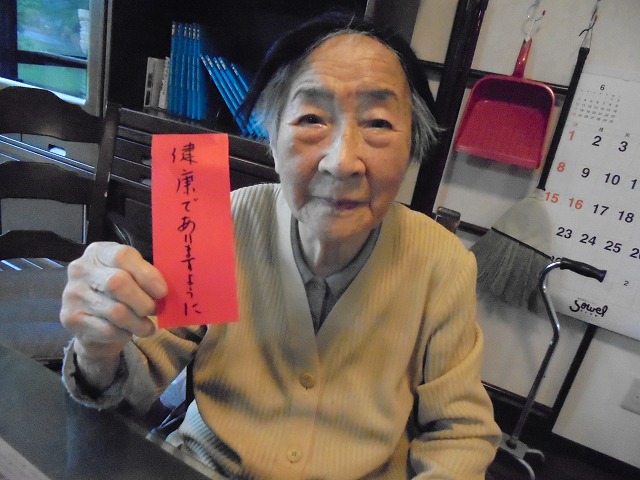 健康でありますように
6
1 2 3
8 9 10
15 16 17 18
23 24 25
sowel